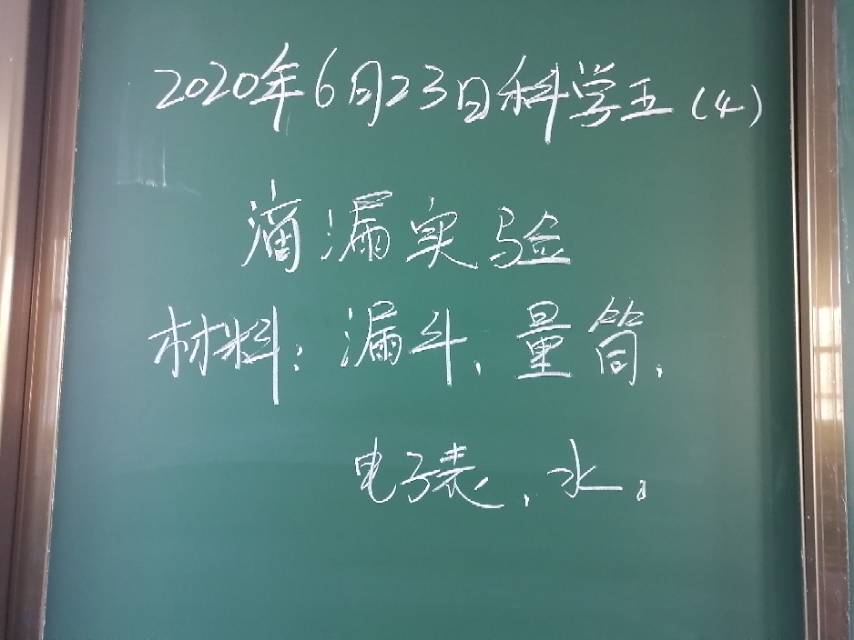 2020年6月23日科学五(4)
滴漏实验
材料：漏斗、量筒、
电子表、水。